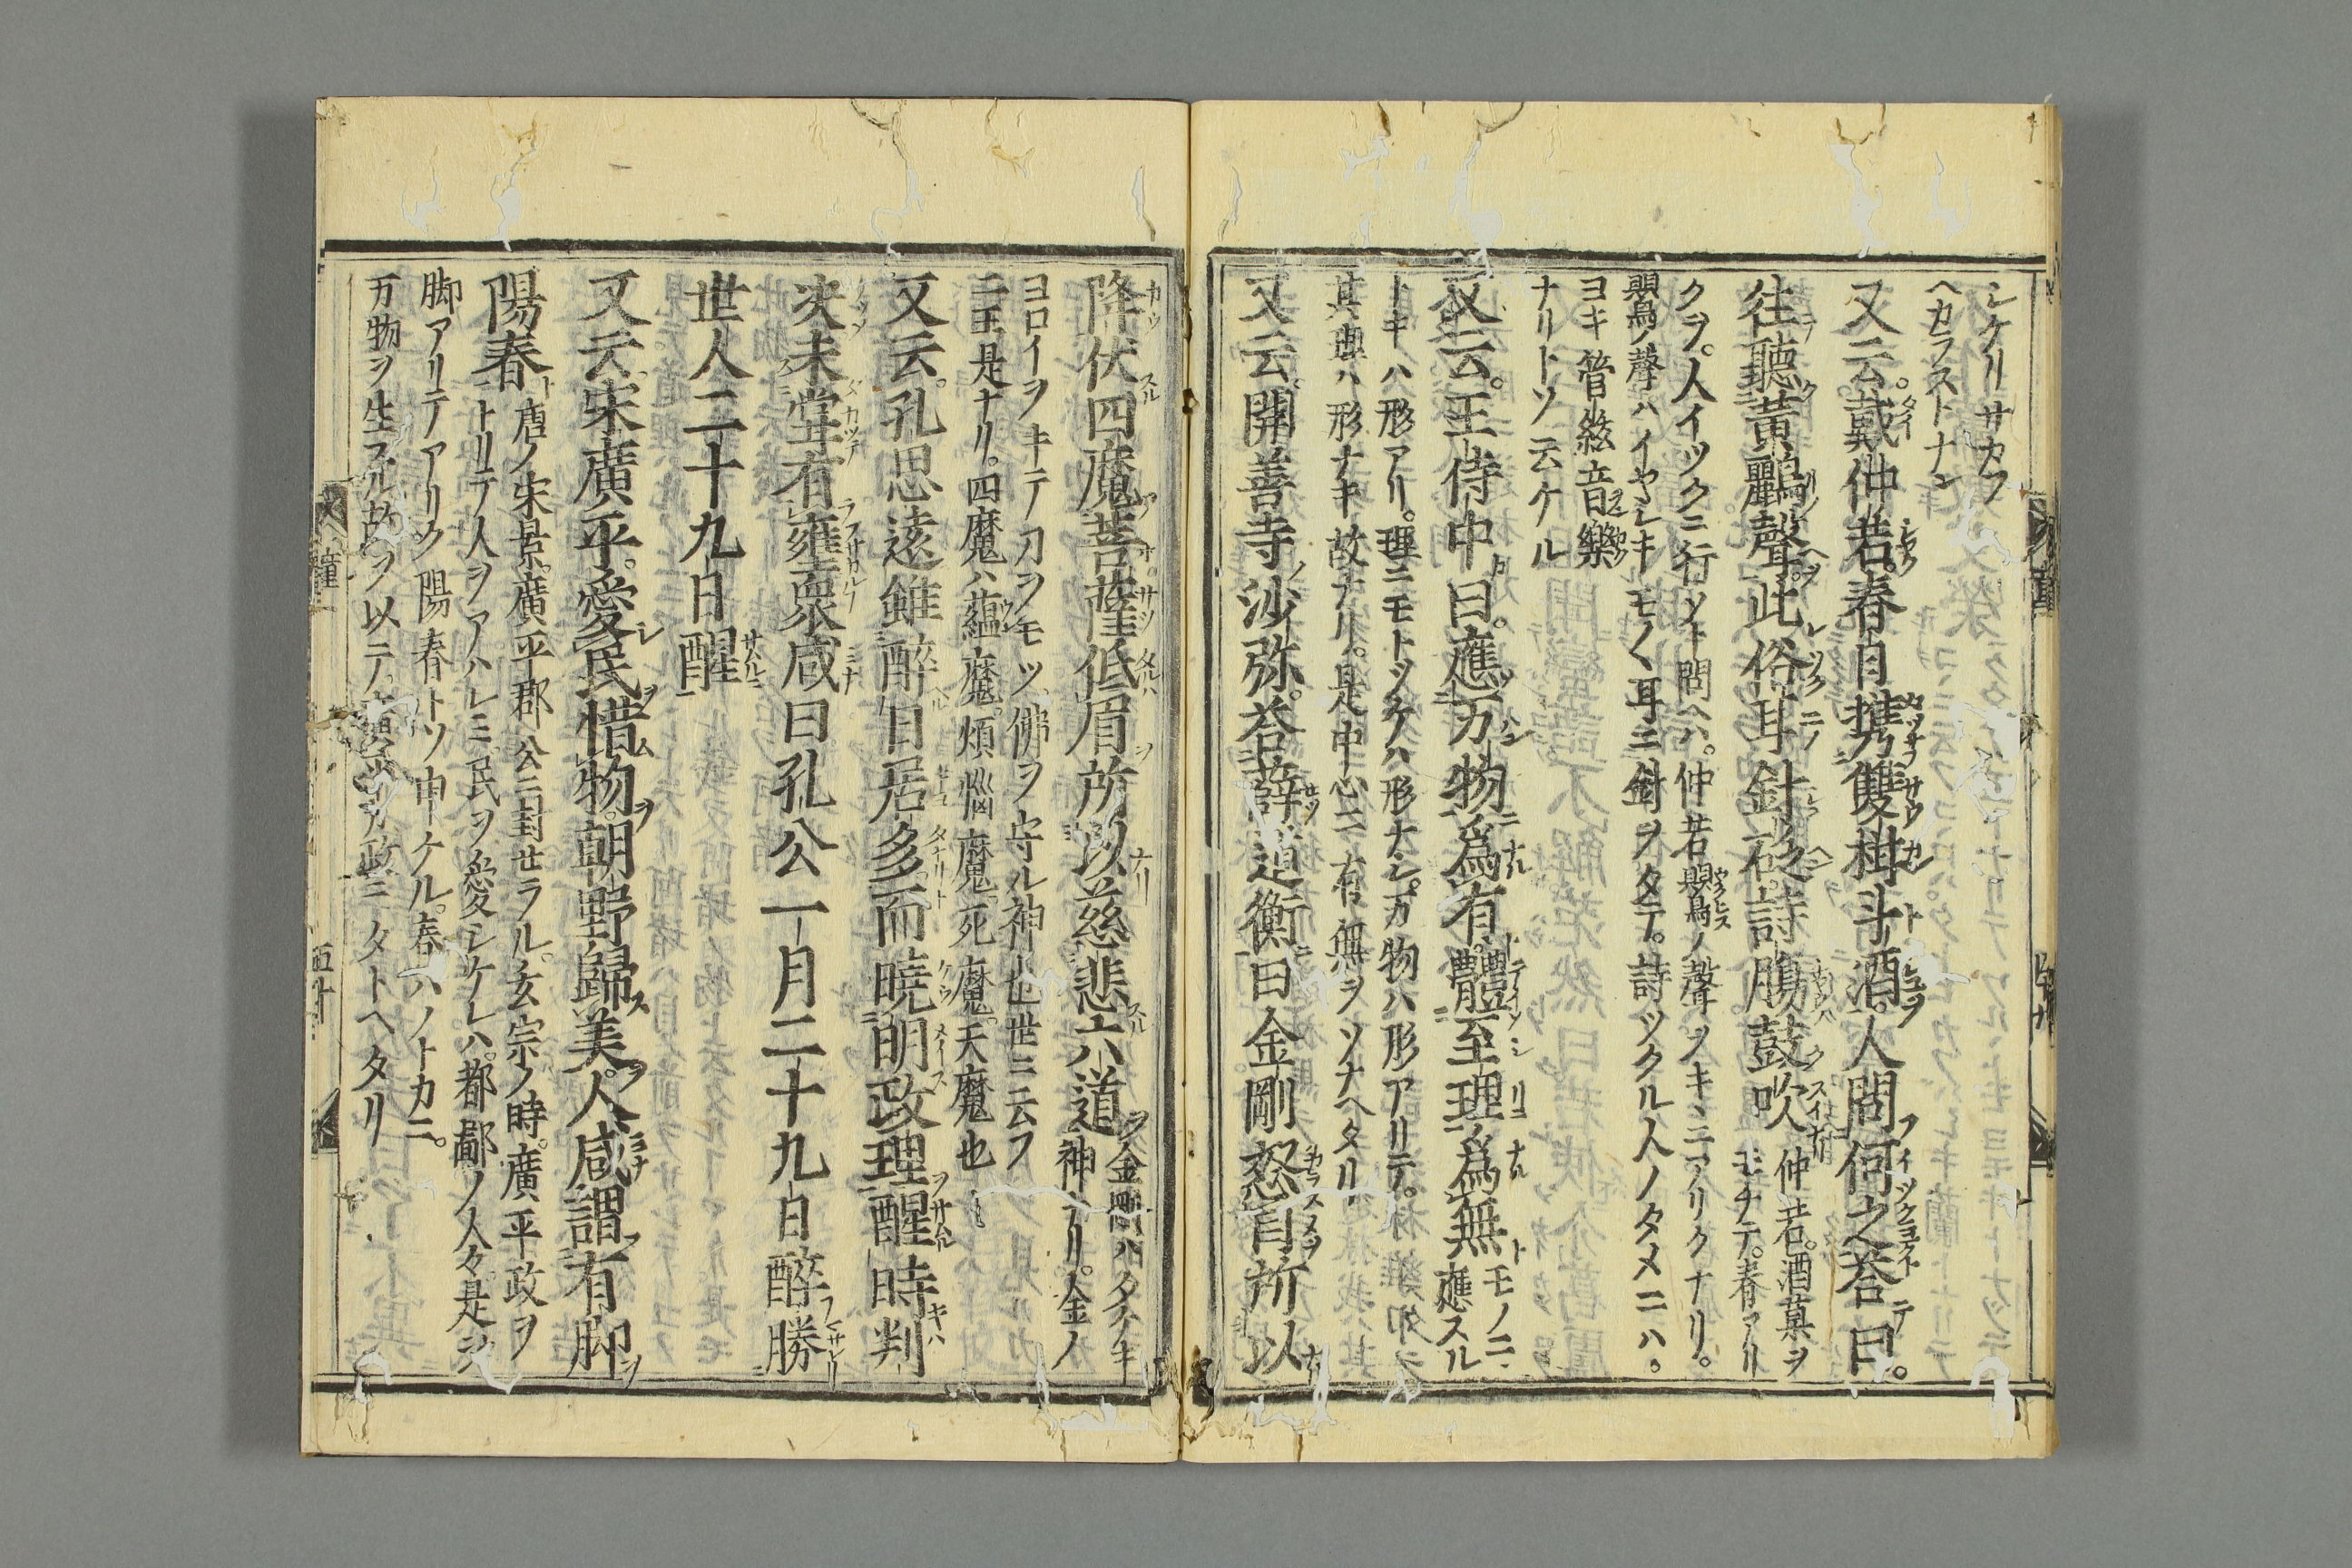 シケリサカフ
ヘカラストナン
又云。戴仲若。春月携雙柑斗酒。人問何之荅曰。
往聽黃鸝聲。此俗耳針砭。詩腸鼓吹 仲若。酒菓ヲ
モチテ。春アリ
クヲ。人イツクニ行ソト問ヘハ。仲若鸎ノ聲ヲキヽニアリクナリ。
鸎ノ聲ハイヤシキモノヽ耳ニ針ヲタテ。詩ツクル人ノタメニハ。
ヨキ管絃音樂
ナリトソ云ケル
又云。王侍中曰。應万物爲有體。至理爲無 モノニ應スル
トキハ形アリ。理ニモトツケハ形ナシ。万物ハ形アリテ。
其理ハ形ナキ故ナリ。是中心ニ有無ヲソナヘタリ
又云。開善寺沙弥。荅薛道衡曰金剛怒目所以
降伏四魔菩薩低眉所以慈悲六道 金剛ハタケキ
神ナリ。金ノ
ヨロイヲキテ刀ヲモツ。佛ヲ守ル神也世ニ云フ
二王是ナリ。四魔ハ蘊魔。煩惱魔。死魔。天魔也
又云。孔思遠雖醉日居多而曉明政理醒時判
决未甞有壅衆咸曰孔公一月二十九日醉勝
世人二十九日醒
又云。宋廣平。愛民惜物。朝野歸美。人咸謂有脚
陽春 唐ノ宋景。廣平郡公ニ封せラル。玄宗ノ時。廣平政ヲ
トリテ人ヲアハレミ民ヲ愛シケレハ。都鄙ノ人々是ヲ
脚アリテアリク陽春トソ申ケル。春ハノトカニ。
万物ヲ生スル故ヲ以テ。政ニタトヘタリ
五十